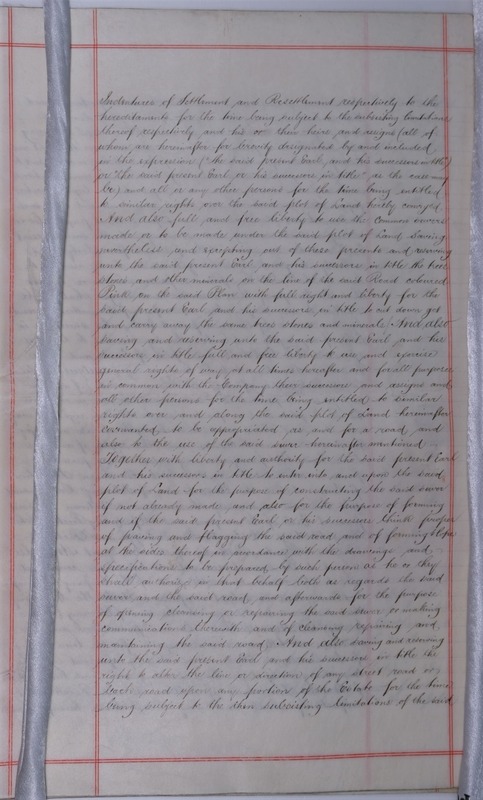 Indentures of Settlement and Resettlement respectively to the
hereditaments for the time being subject to the subsisting limitations
thereof respectively and his or their heirs and assigns (all of
whom are hereinafter for brevity designated by and included
in the expression ("the said present Earl and his successors in title")
or "the said present Earl or his successors in title" as the case may
be) and all or any other persons for the time being entitled
to similar rights over the said plot of Land hereby conveyed
And also full and free liberty to use the common sewers
made or to be made under the said plot of Land Saving
nevertheless and excepting out of these presents and reserving
unto the said present Earl and his successors in title the trees
stones and other minerals on the line of the said Road coloured
Pink on the said Plan with full right and liberty for the
said present Earl and his successors in title to cut down get
and carry away the same trees stones and minerals And also
saving and reserving unto the said present Earl and his
successors in title full and free liberty to use and exercise
general rights of way at all times hereafter and for all purposes
in common with the Company their successors and assigns and
all other persons for the time being entitled to similar
rights over and along the said plot of Land hereinafter
covenanted to be appropriated as and for a road and
also to the use of the said sewer hereinafter mentioned
Together with liberty and authority for the said present Earl
and his successors in title to enter into and upon the said
plot of Land for the purpose of constructing the said sewer
if not already made and also for the purpose of forming
and if the said present Earl or his successors think proper
of paving and flagging the said road and of forming slopes
at the sides thereof in accordance with the drawings and
specifications to be prepared by such person as he or they
shall authorise in that behalf both as regards the said
sewer and the said road and afterwards for the purpose
of opening cleansing or repairing the said sewer or making
communications therewith and of cleansing repairing and
maintaining the said road And also saving and reserving
unto the said present Earl and his successors in title the
right to alter the line or direction of any street road or
back road upon any portion of the Estate for the time
being subject to the then subsisting limitations of the said